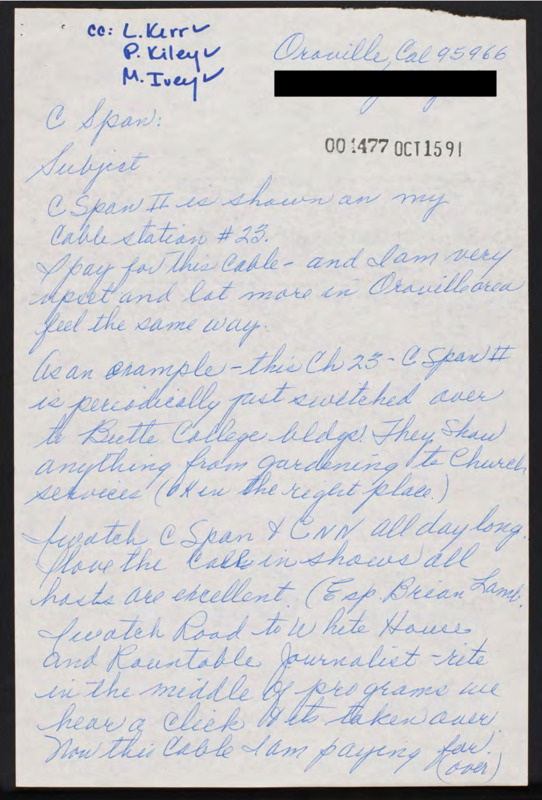 cc: L. Kerr ✓
P. Kiley ✓
M. Ivey ✓
Oroville, Cal 95966
C Span:
001477 OCT 15 91
Subject
C Span II is shown on my
Cable station #23.
I pay for this Cable - and I am very
upset and lot more in Oroville area
feel the same way.
As an example - this Ch 23 - C Span II
is periodically just switched over
to Butte College bldgs! They show
anything from gardening to Church
services (OK in the right place.)
I watch C Span & CNN all day long.
I love the Call in shows all
hosts are excellent. (Esp. Brian Lamb.
I watch Road to White House
and Rountable Journalist - rite
in the middle of programs we
hear a click & its taken over.
Now this Cable I am paying for.
(over)